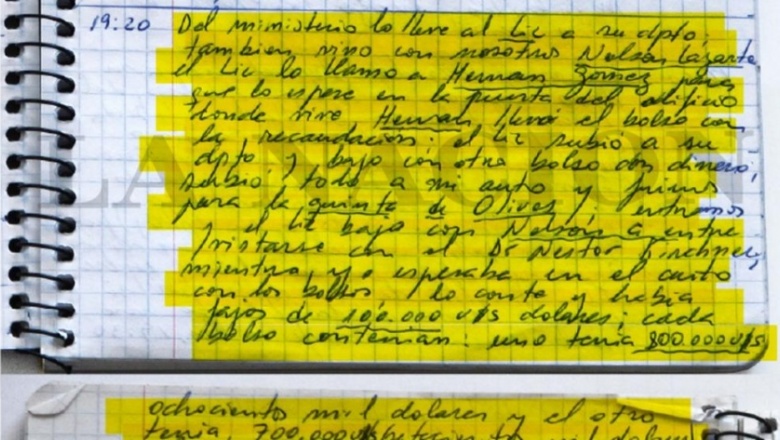 19:20 Del ministerio lo lleve al Lic a su dpto,
tambien vino con nosotros Nelson Lazarte
el Lic lo llamo a Hernan Gomez para
que lo espere en la puerta del edificio
donde vive Hernan llevó el bolso con
la recaudación: el Lic subió a su
dpto y bajo con otro bolso con dinero,
subió todo a mi auto y fuimos
para la quinta de Olivos, entramos
y el Lic bajo con Nelson a entre
vistarse con el Dr Nestor Kirchner,
mientras yo esperaba en el auto
con los bolsos lo conte y habia
fajos de 100.000 U$S dolares; cada
bolso contenian: uno tenia 800.000 U$S
ochocientos mil dolares y el otro
tenia, 700.000 U$S setecientos mil dolares
LA NACION